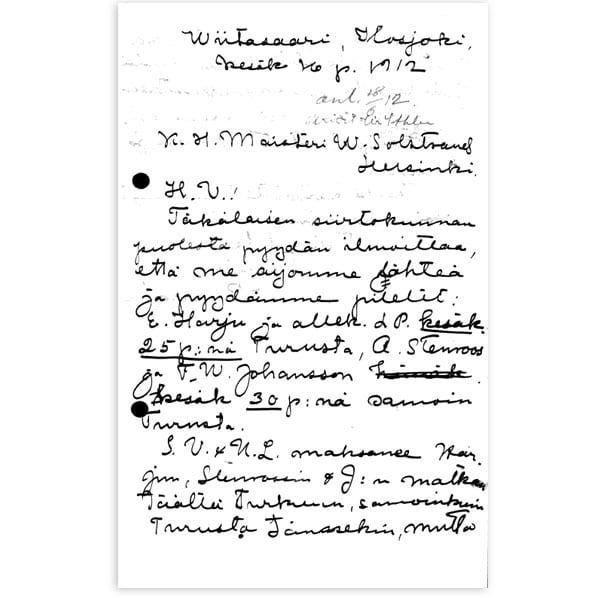 Wiitasaari, Ilosjoki,
kesäk 16 p. 1912
ank. 18/6 12.
K. H. Maisteri W. Solstrand
Helsinki.
H. V.!
Täkäläisen siirtokunnan
puolesta pyydän ilmoittaa,
että me aijomme lähteä
ja pyydämme piletit:
E. Harju ja allek. d P. kesäk.
25 p:nä Turusta, A. Stenroos
ja F. W. Johansson
kesäk 30 p:nä samoin
Turusta.
S. V. & N. L. maksanee Har-
jun, Stenroosin & J:n matkan
täältä Turkuun, samoinkuin
Turusta Tänssekin, mutta